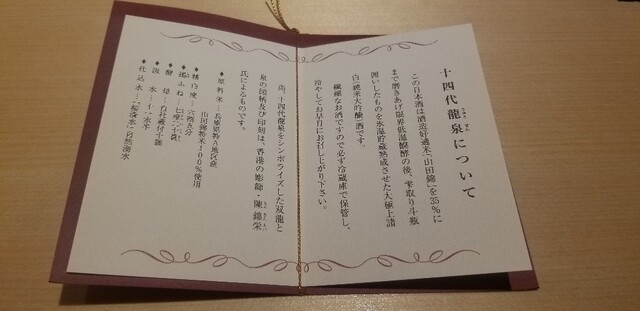 十四代龍泉について
この日本酒は酒造好適米「山田錦」を35%に
まで磨きあげ限界低温醗酵の後、雫取り斗瓶
囲いしたものを氷温貯蔵熟成させた大極上諸
白（純米大吟醸）酒です。
繊細なお酒ですので必ず冷蔵庫で保管し、
冷やしてお早目にお召し上がり下さい。
尚、十四代龍泉をシンボライズした双龍と
泉の図柄及び印刻は、香港の彫師・陳錦栄
氏によるものです。
◆原料米―兵庫県特A地区産
山田錦粉米100%使用
◆精白度―六割五分
◆
◆酵母―自社種付十郷
◆汲水―
◆仕込水―「桜清水」自然湧水